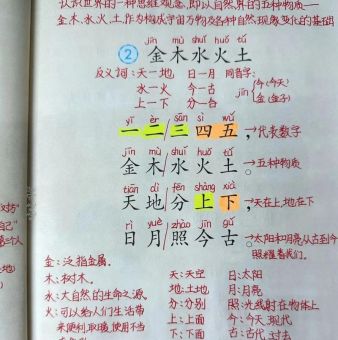 认识世界的一种思维观念,即以自然界的五种物质—
金、水、木、火、土,作为构成宇宙万物及各种自然现象变化的基础
jīn mù shuǐ huǒ tǔ
② 金木水火土
反义词:天—地 日—月 同音字:
水—火 今—古 jīn 今(今天)
上—下 分—合 金(金子)
yī èr sān sì wǔ
一二/三四五, →代表数字
jīn mù shuǐ huǒ tǔ
金木/水火土。→五种物质
tiān dì fēn shàng xià
天地/分上下, →天在上,地在下
rì yuè zhào jīn gǔ
日月/照今古。→太阳和月亮从古到今
照耀着我们。
金:泛指金属。
木:树木。 天:天空 日:太阳
水:大自然的生命之源 地:土地 月:月亮
火:可以给人们生活带 分:分别 照:光线射在物体上
来便利,取暖,使用不当 上:上面 今:今天,现代
下:下面 古:古代,过去